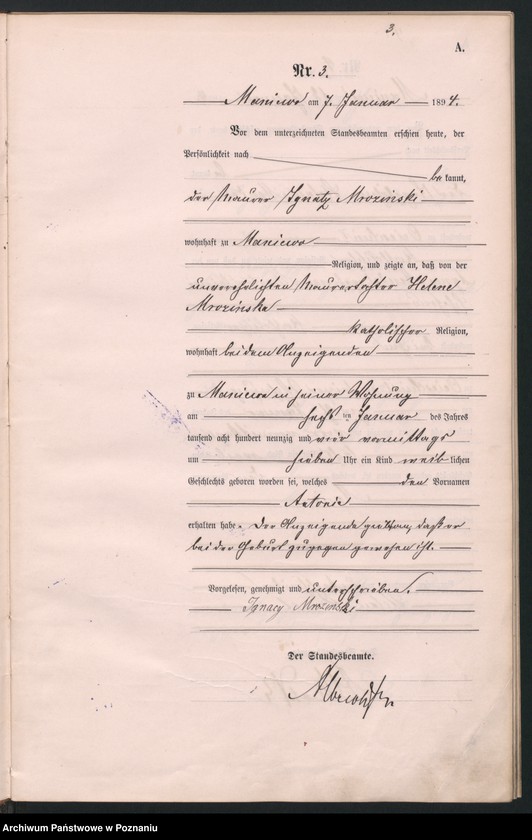 3.
A.
Nr. 3.
Maniewo am 7. Januar 1894.
Vor dem unterzeichneten Standesbeamten erschien heute, der
Persönlichkeit nach
bekannt,
der Maurer Ignatz Mroziński
wohnhaft zu Maniewo
Religion, und zeigte an, daß von der
unverehelichten Maurertochter Helene
Mrozińska
katholischer Religion,
wohnhaft bei dem Anzeigenden
zu Maniewo in seiner Wohnung
am sechsten Januar des Jahres
tausend acht hundert neunzig und vier vormittags
um sieben Uhr ein Kind weiblichen
Geschlechts geboren worden sei, welches den Vornamen
Antonie
erhalten habe. Der Anzeigende, daß er
bei der Geburt zugegen gewesen ist.
Vorgelesen, genehmigt und unterschrieben.
Ignacy Mroziński
Der Standesbeamte.
Archiwum Państwowe w Poznaniu